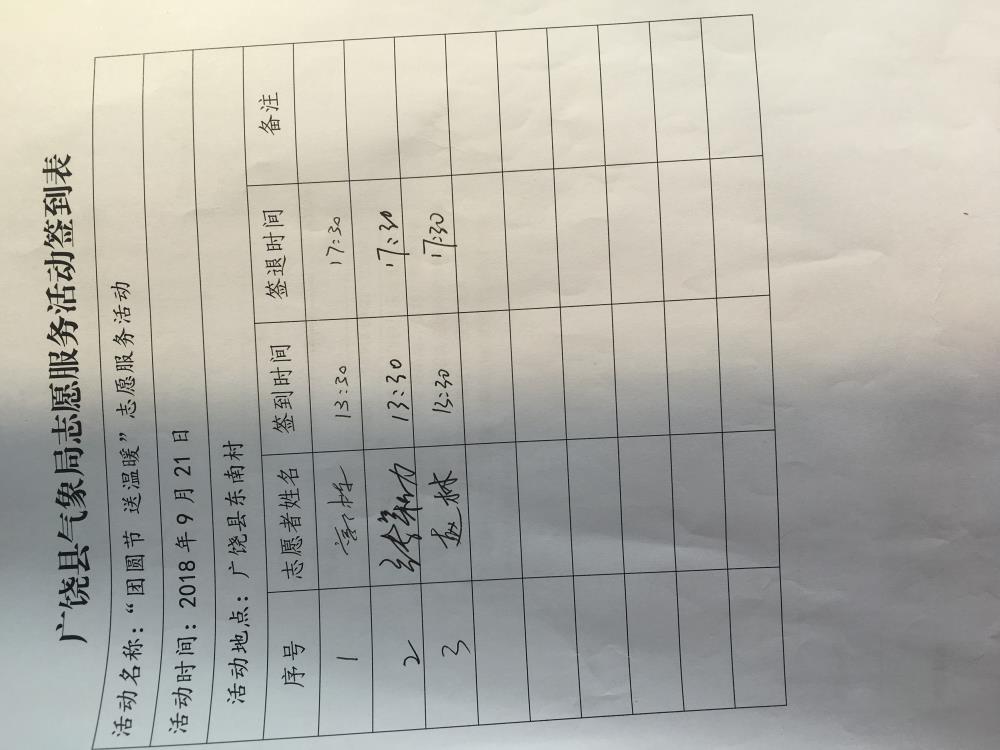 广饶县气象局志愿服务活动签到表
活动名称：“团圆节 送温暖”志愿服务活动
活动时间：2018年9月21日
活动地点：广饶县东南村
序号 志愿者姓名 签到时间 签退时间 备注
1 13:30 17:30
2 13:30 17:30
3 赵林 13:30 17:30